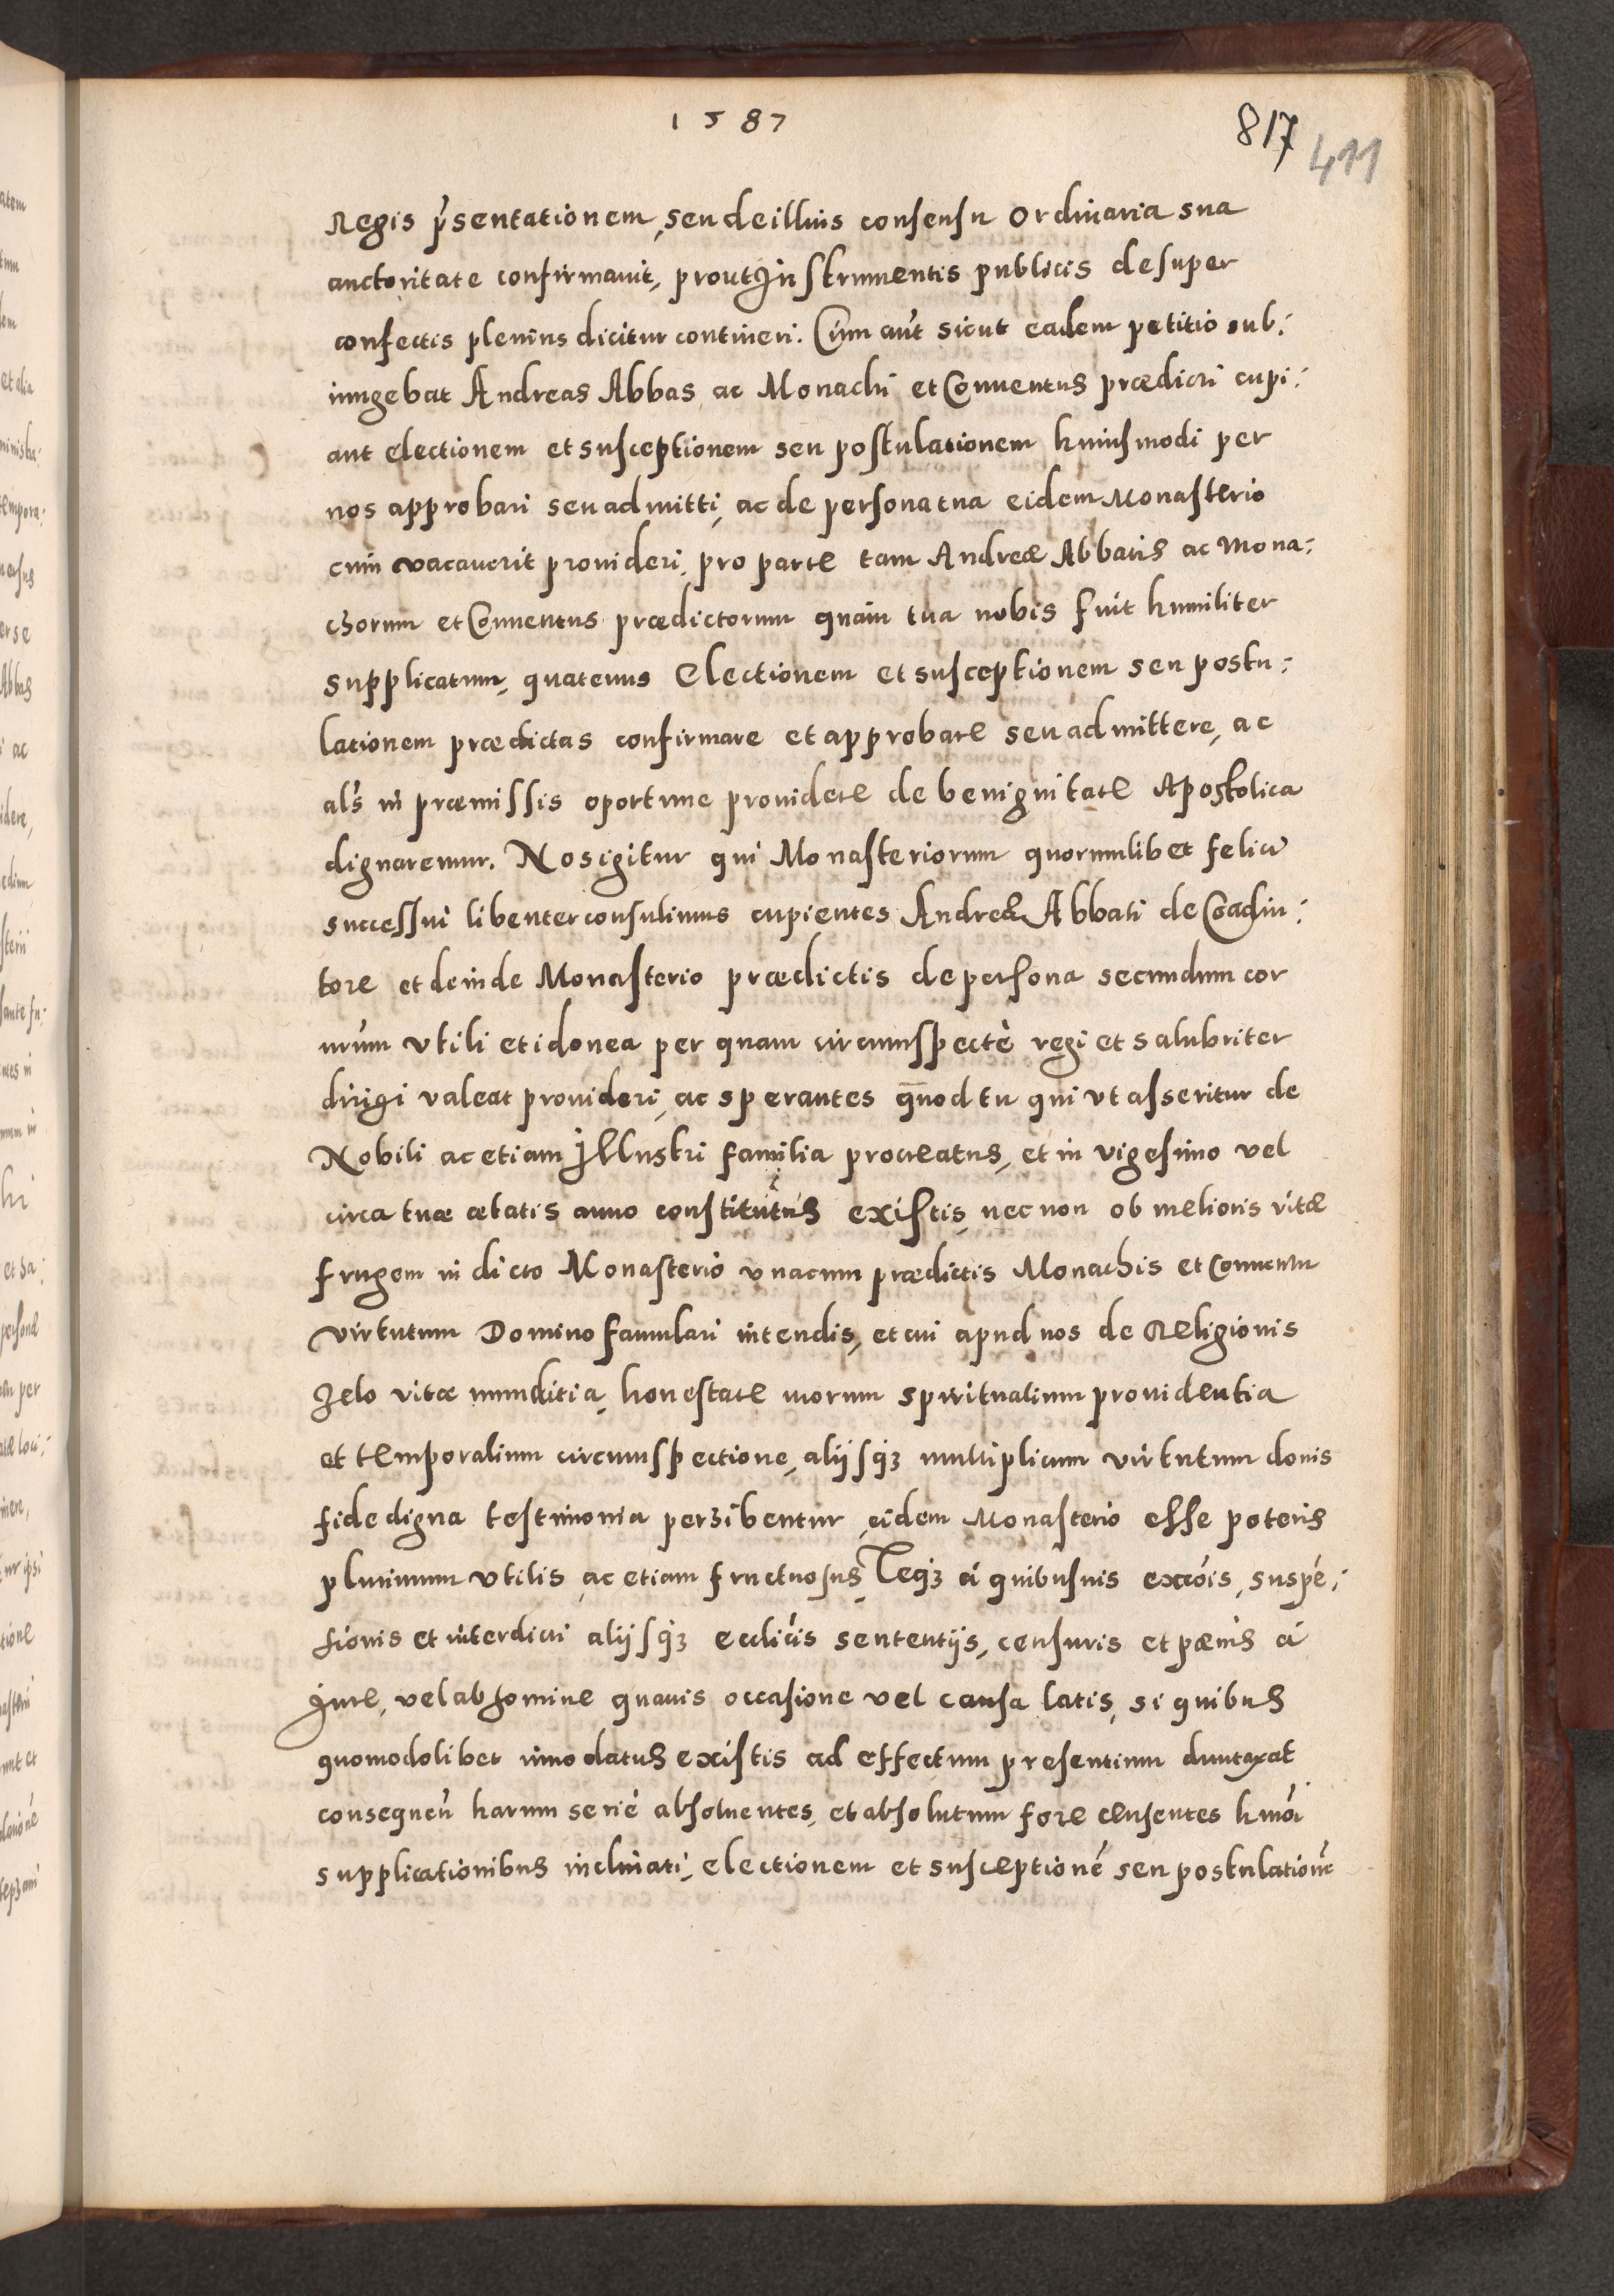 1587
817
411
Regis p̃sentationem, seu de illius consensu Ordinaria sua
auctoritate confirmauit, prout Instrumentis publicis desuper
confectis plenius dicitur contineri. Cùm aut̃ sicut eadem petitio sub:
iungebat Andreas Abbas, ac Monachi et Conuentus prædicti cupi:
ant electionem et susceptionem seu postulationem huiusmodi per
nos approbari seu admitti, ac de persona tua eidem Monasterio
cum vacauerit prouideri, pro parte tam Andreæ Abbatis ac Mona:
chorum et Conuentus prædictorum quàm tua nobis fuit humiliter
supplicatum, quatenus Electionem et susceptionem seu postu:
lationem prædictas confirmare et approbare seu admittere, ac
als̃ in præmissis oportune prouidere de benignitate Apostolica
dignaremur. Nos igitur qui Monasteriorum quorumlibet felici
successui libenter consulimus cupientes Andreæ Abbati de Coadiu:
tore et deinde Monasterio prædictis de persona secundum cor
nr̃um vtili et idonea per quam circumspectè regi et salubriter
dirigi valeat prouideri, ac sperantes quod tu qui vt asseritur de
Nobili ac etiam Illustri familia procreatus, et in vigesimo vel
circa tuæ ætatis anno constitutus existis, nec non ob melioris vitæ
frugem in dicto Monasterio vna cum prædictis Monachis et Conuentu
virtutum Domino famulari intendis, et cui apud nos de Religionis
zelo vitæ munditia, honestate morum spiritualium prouidentia
et temporalium circumspectione, alijsq₃ multiplicum virtutum donis
fide digna testimonia perhibentur, eidem Monasterio esse poteris
plurimum vtilis, ac etiam fructuosus, Teq₃ à quibusuis excõis, suspẽ:
sionis et interdicti alijsq₃ ecclicis sententijs, censuris et pænis à
Iure, vel ab homine quauis occasione vel causa latis, si quibus
quomodolibet innodatus existis ad effectum presentium duntaxat
consequen̄ harum seriè absoluentes, et absolutum fore censentes hmõi
supplicationibus inclinati, electionem et susceptionẽ seu postulationẽ